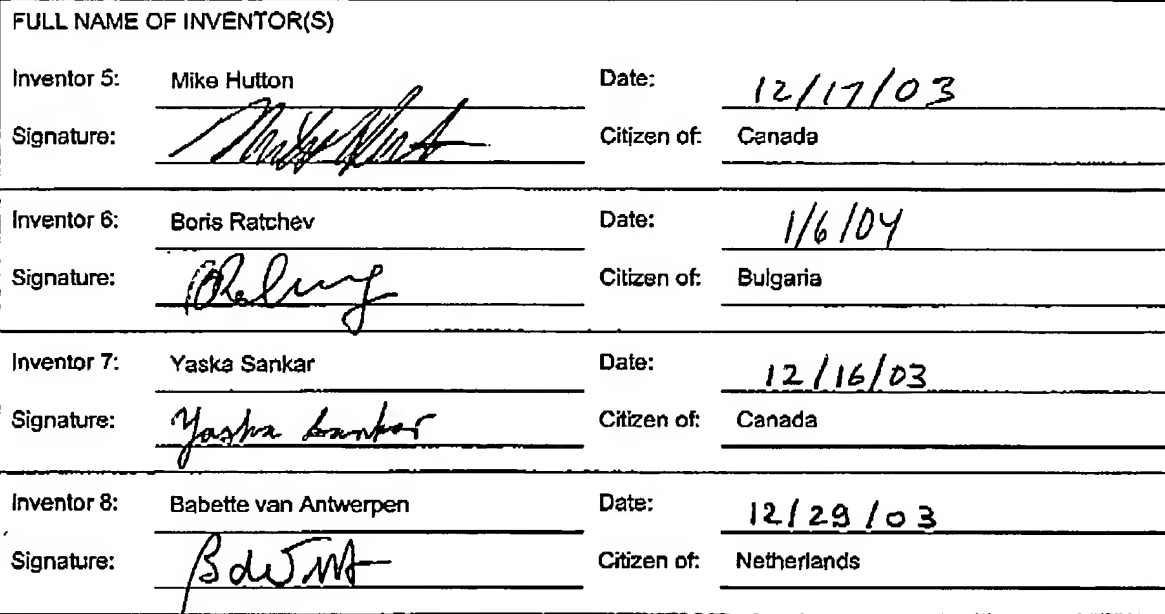 FULL NAME OF INVENTOR(S)
Inventor 5: Mike Hutton Date: 12/17/03
Signature: Citizen of: Canada
Inventor 6: Boris Ratchev Date: 1/6/04
Signature: Citizen of: Bulgaria
Inventor 7: Yaska Sankar Date: 12/16/03
Signature: Yaska Sankar Citizen of: Canada
Inventor 8: Babette van Antwerpen Date: 12/29/03
Signature: Citizen of: Netherlands